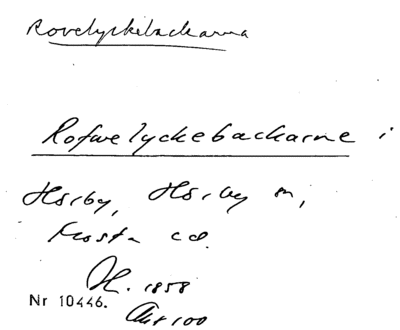 Rovelyckebackarna
Rofwelyckebackarne i
Hörby, Hörby sn,
Frosta hd.
H. 1858
Nr 10446.
Akt 100